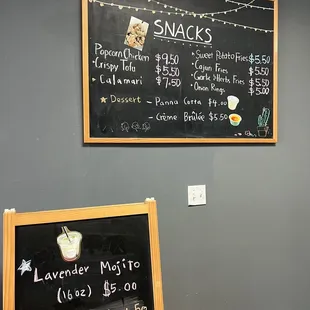 SNACKS
Popcorn Chicken $9.50
Crispy Tofu $5.50
Calamari $7.50
Sweet Potato Fries $5.50
Cajun Fries $5.50
Garlic & Herbs Fries $5.50
Onion Rings $5.00
Dessert - Panna Cotta $4.00
- Crème Brûlée $5.50
Lavender Mojito
(16oz) $5.00